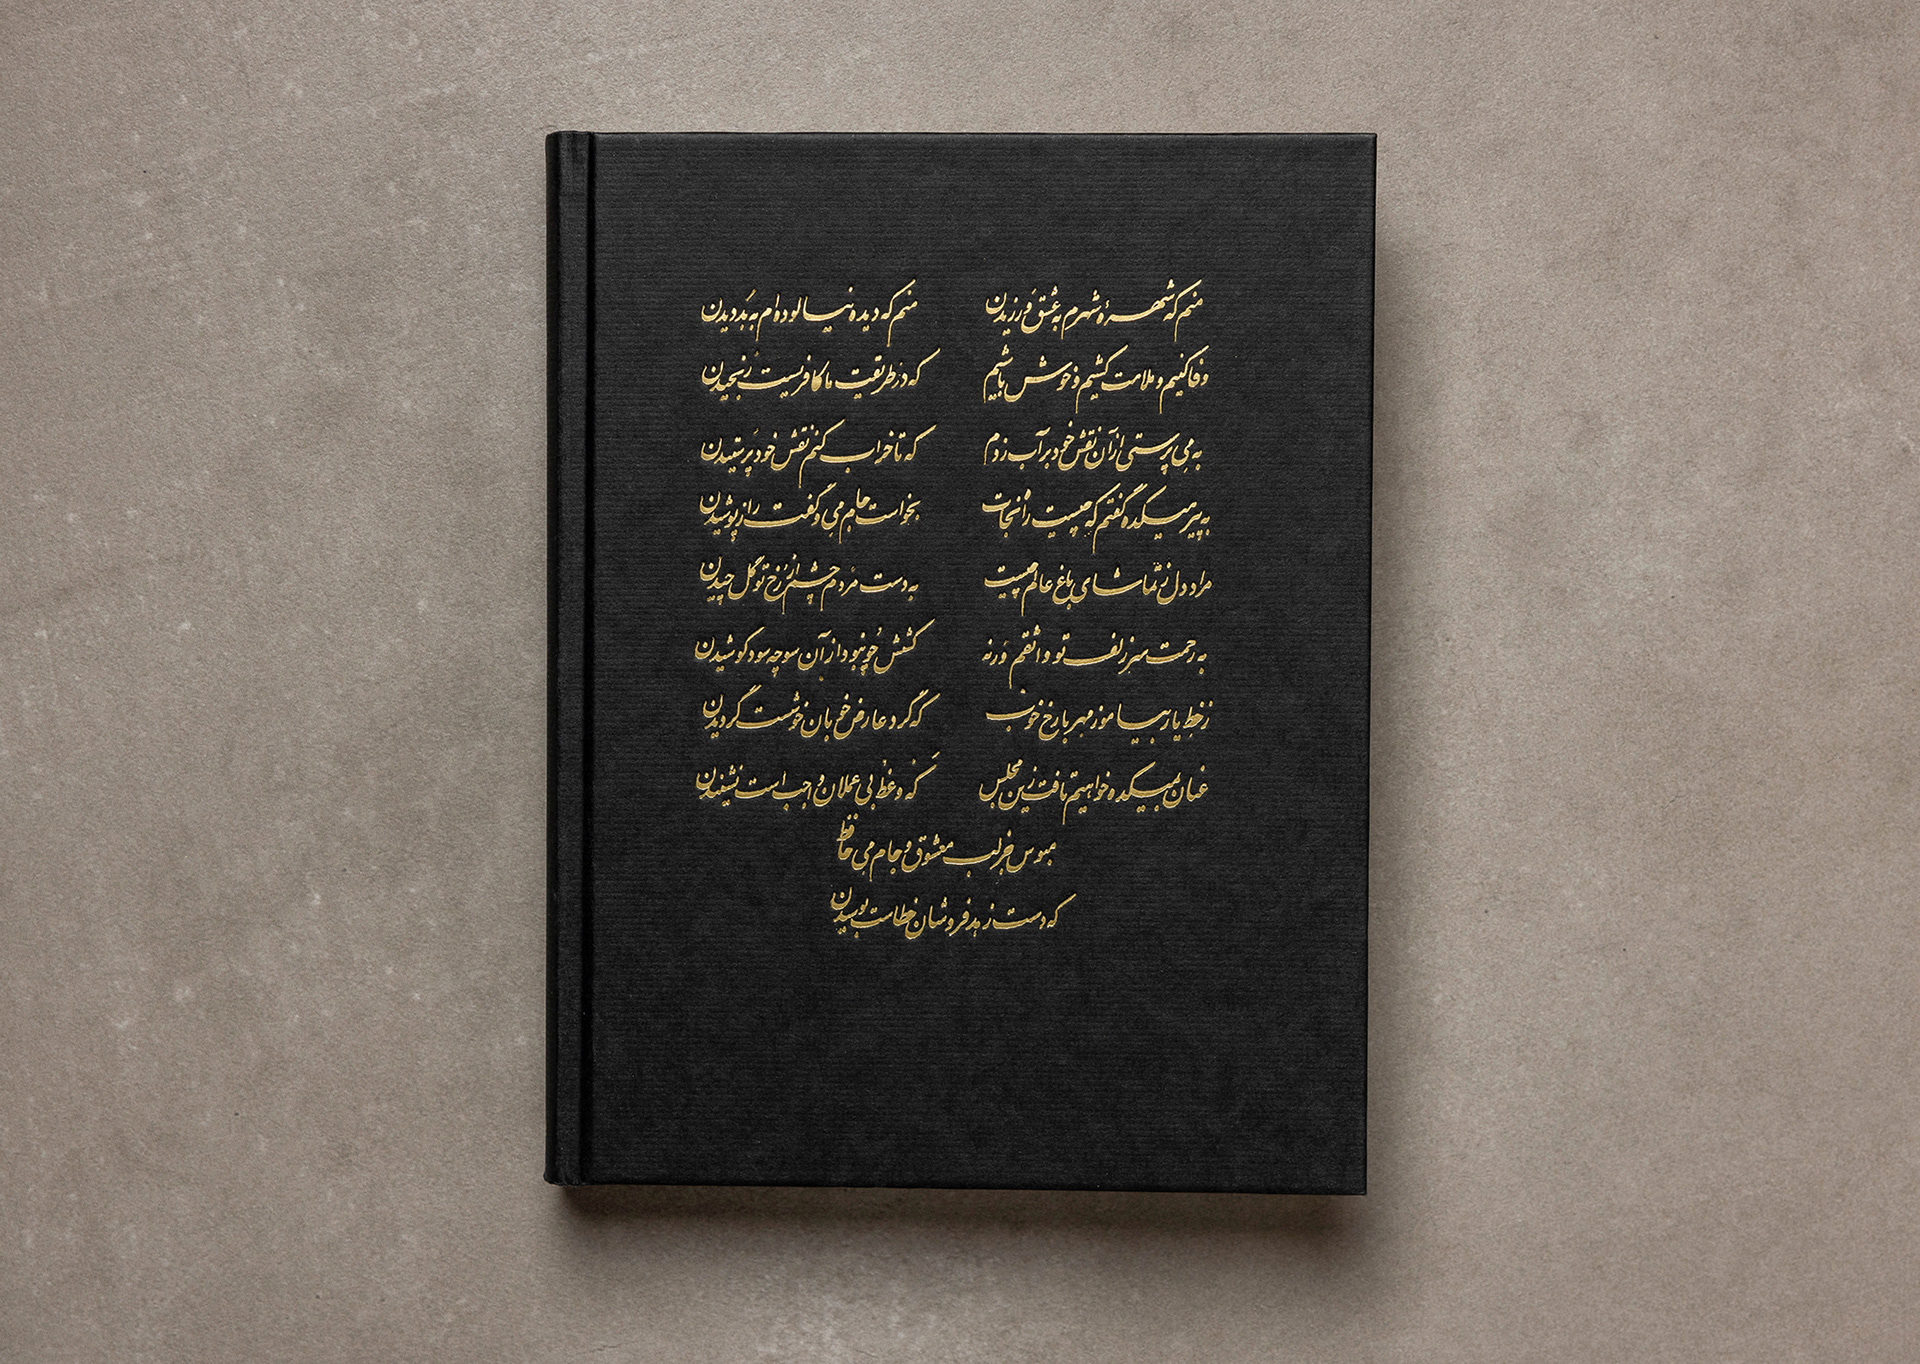 منم که شهرهٔ شهرم به عشق ورزیدن منم که دیده نیالوده‌ام به بد دیدن
وفا کنیم و ملامت کشیم و خوش باشیم که در طریقت ما کافریست رنجیدن
به می پرستی از آن نقش خود بر آب زدم که تا خراب کنم نقش خود پرستیدن
به پیر میکده گفتم که چیست راه نجات بخواست جام می و گفت راز پوشیدن
مراد دل ز تماشای باغ عالم چیست به دست مردم چشم از رخ تو گل چیدن
به رحمت سر زلف تو واثقم ورنه کشش چو نبود از آن سو چه سود کوشیدن
ز خط یار بیاموز مهر با رخ خوب که گرد عارض خوبان خوشست گردیدن
عنان به میکده خواهیم تافت زین مجلس که وعظ بی عملان واجب است نشنیدن
مبوس جز لب معشوق و جام می حافظ
که دست زهد فروشان خطاست بوسیدن